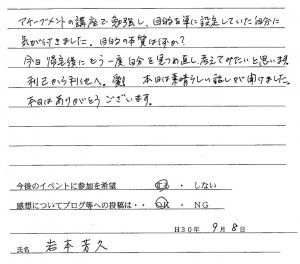 アチーブメントの講座で勉強し、目的を単に設定していた自分に
気が付きました。目的の本質は何か？
今日帰宅後にもう一度自分を見つめ直し考えてみたいと思います。
利己から利他へ。 本日は素晴らしい話しが聞けました。
本日はありがとうございます。
今後のイベントに参加を希望 する ・ しない
感想についてブログ等への投稿は・・ OK ・ NG
H30年 9月 8日
氏名 岩本芳久